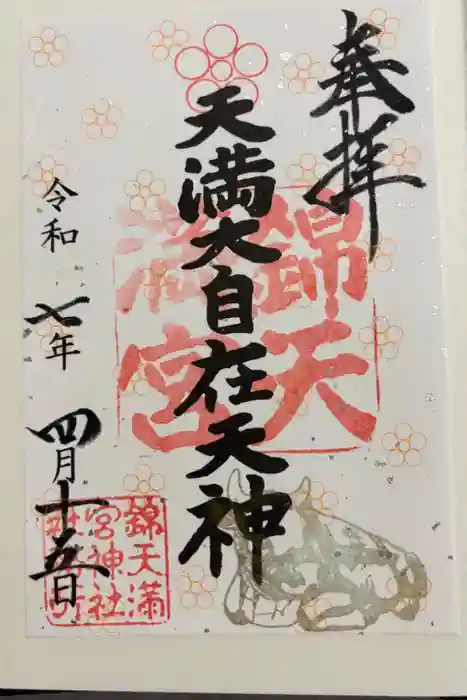 奉拝
天満大自在天神
錦天
満宮
令和七年四月十五日
錦天満
宮神社
社